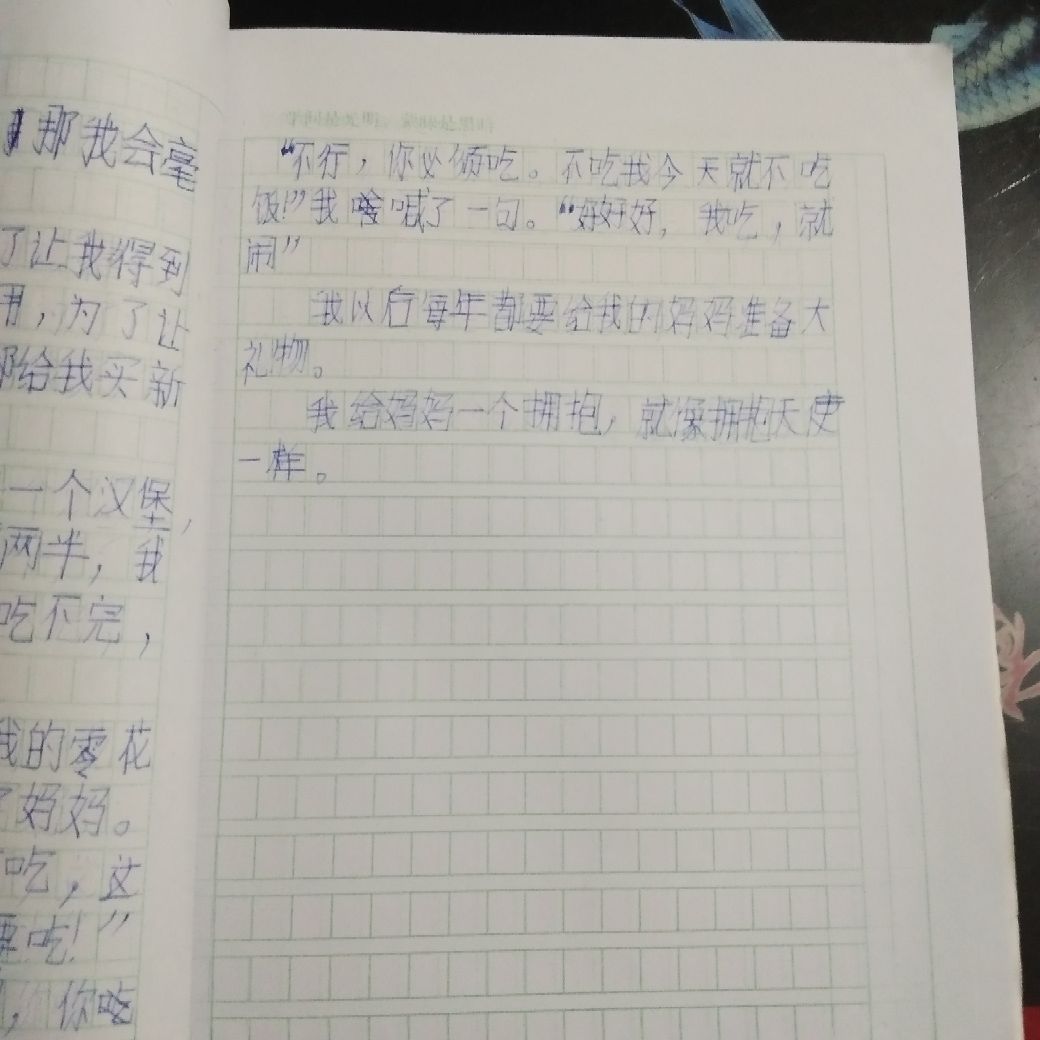 那我会毫
了让我得到
用，为了让
给我买新
一个汉堡，
两半，我
吃不完，
我的零花
了妈妈。
吃，这
要吃！”
，你吃
“不行，你必须吃。不吃我今天就不吃
饭！”我喊了一句。“好好好，我吃，就
闹”
我以后每年都要给我的妈妈准备大
礼物。
我给妈妈一个拥抱，就像拥抱天使
一样。